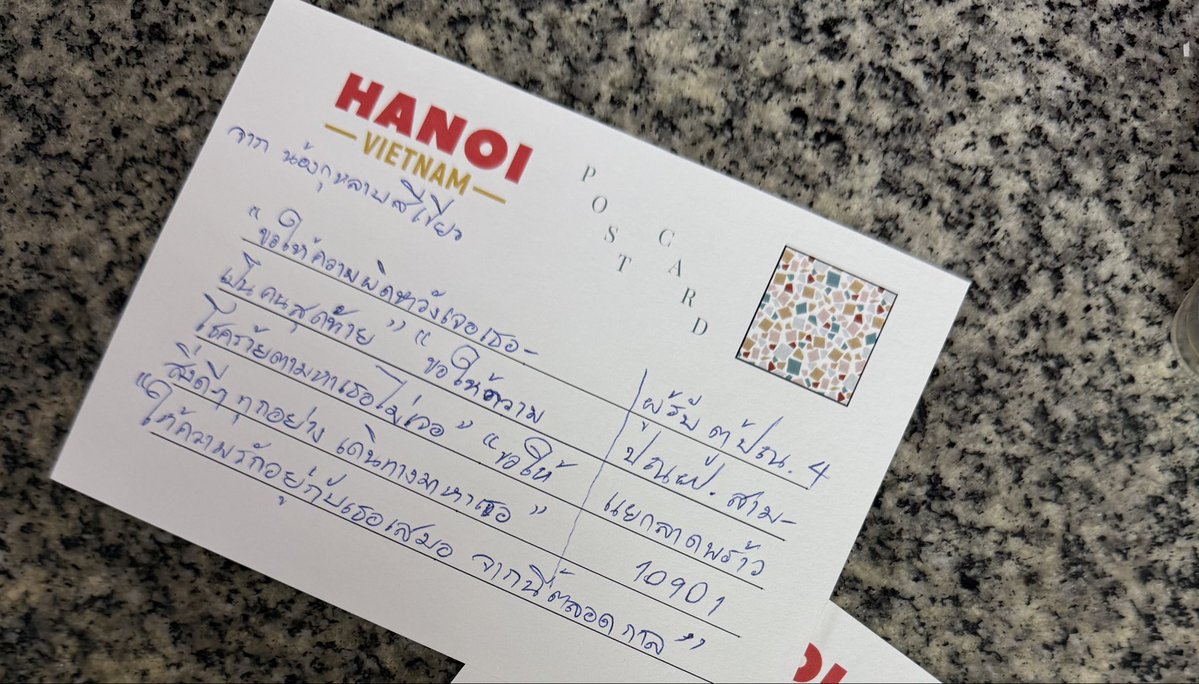 HANOI
VIETNAM
POST CARD
จาก น้องกุหลาบสีเขียว
"ขอให้ความผิดหวังเจอเธอ-
เป็นคนสุดท้าย" "ขอให้ความ
โชคร้ายตามหาเธอไม่เจอ" "ขอให้
สิ่งดีๆ ทุกอย่าง เดินทางมาหาเธอ"
"ให้ความรักอยู่กับเธอเสมอ จากนี้ตลอดกาล"
ผู้รับ ตู้ ปณ. 4
ปณฝป. สาม-
แยกลาดพร้าว
10901
OI